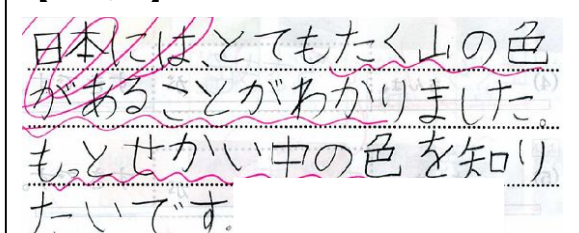 日本には、とてもたく山の色
があることがわかりました。
もっとせかい中の色を知り
たいです。